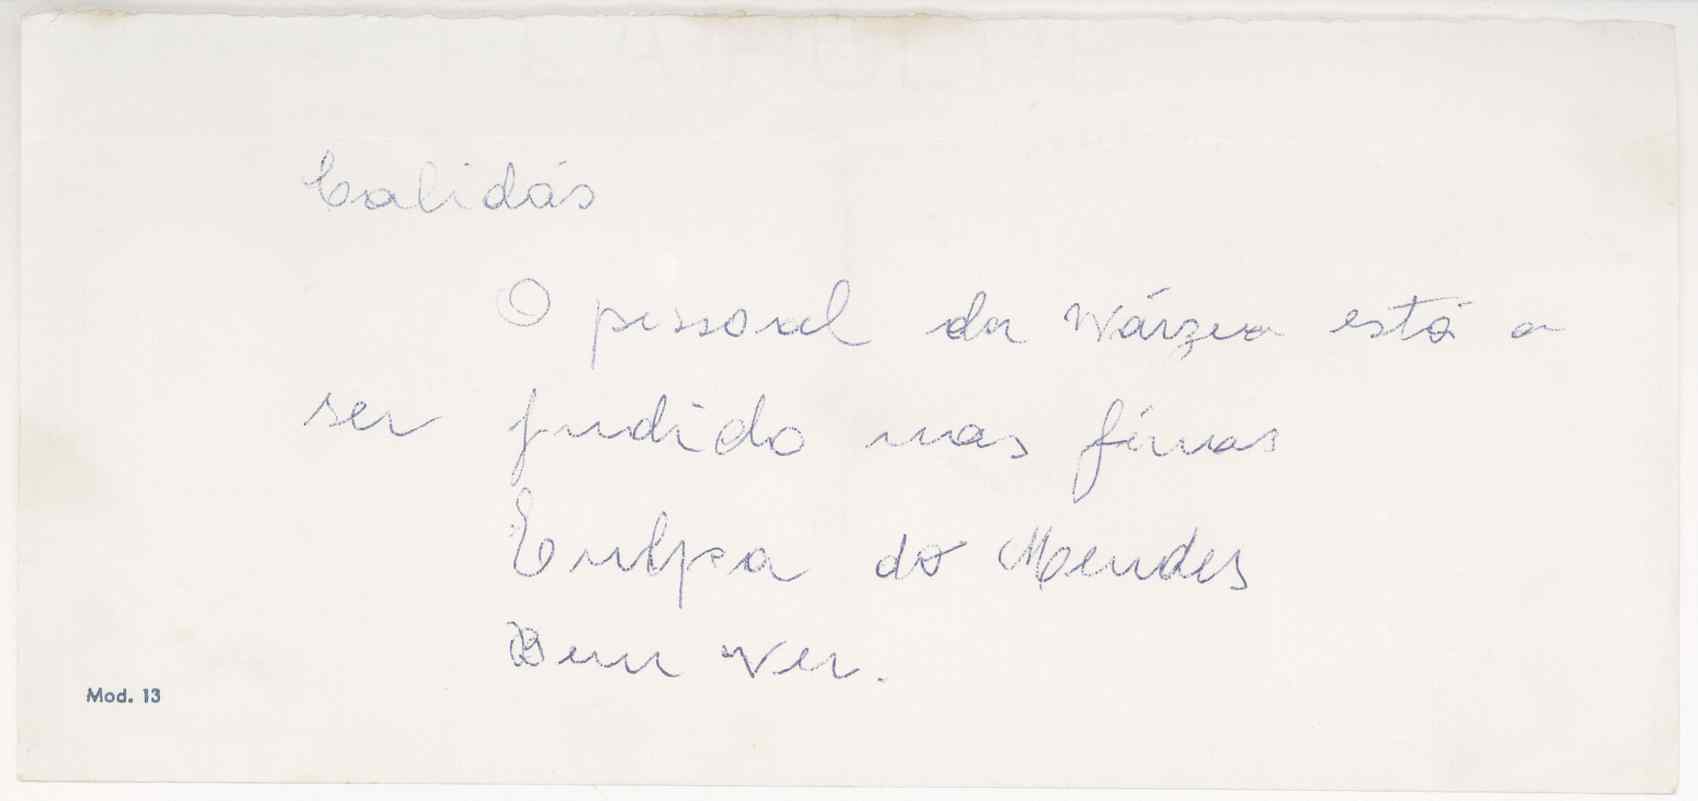 Calidás
O pessoal da Várzea está a
ser fudido nas férias
Culpa do Mendes
Bem Ver.
Mod. 13